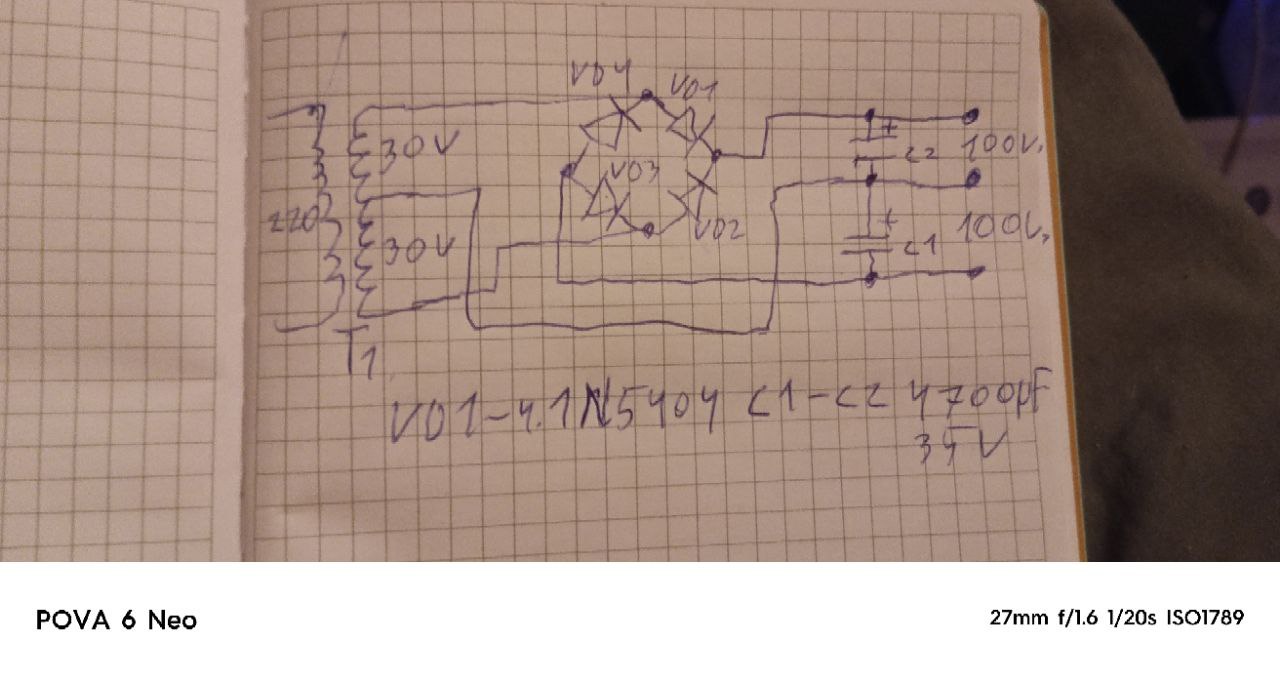 VD4 VD1
30V + C2 100V.
VD3
220 VD2
30V + C1 100V.
T1
VD1-4.1N5404 C1-C2 4700pF
35V
POVA 6 Neo
27mm f/1.6 1/20s ISO1789